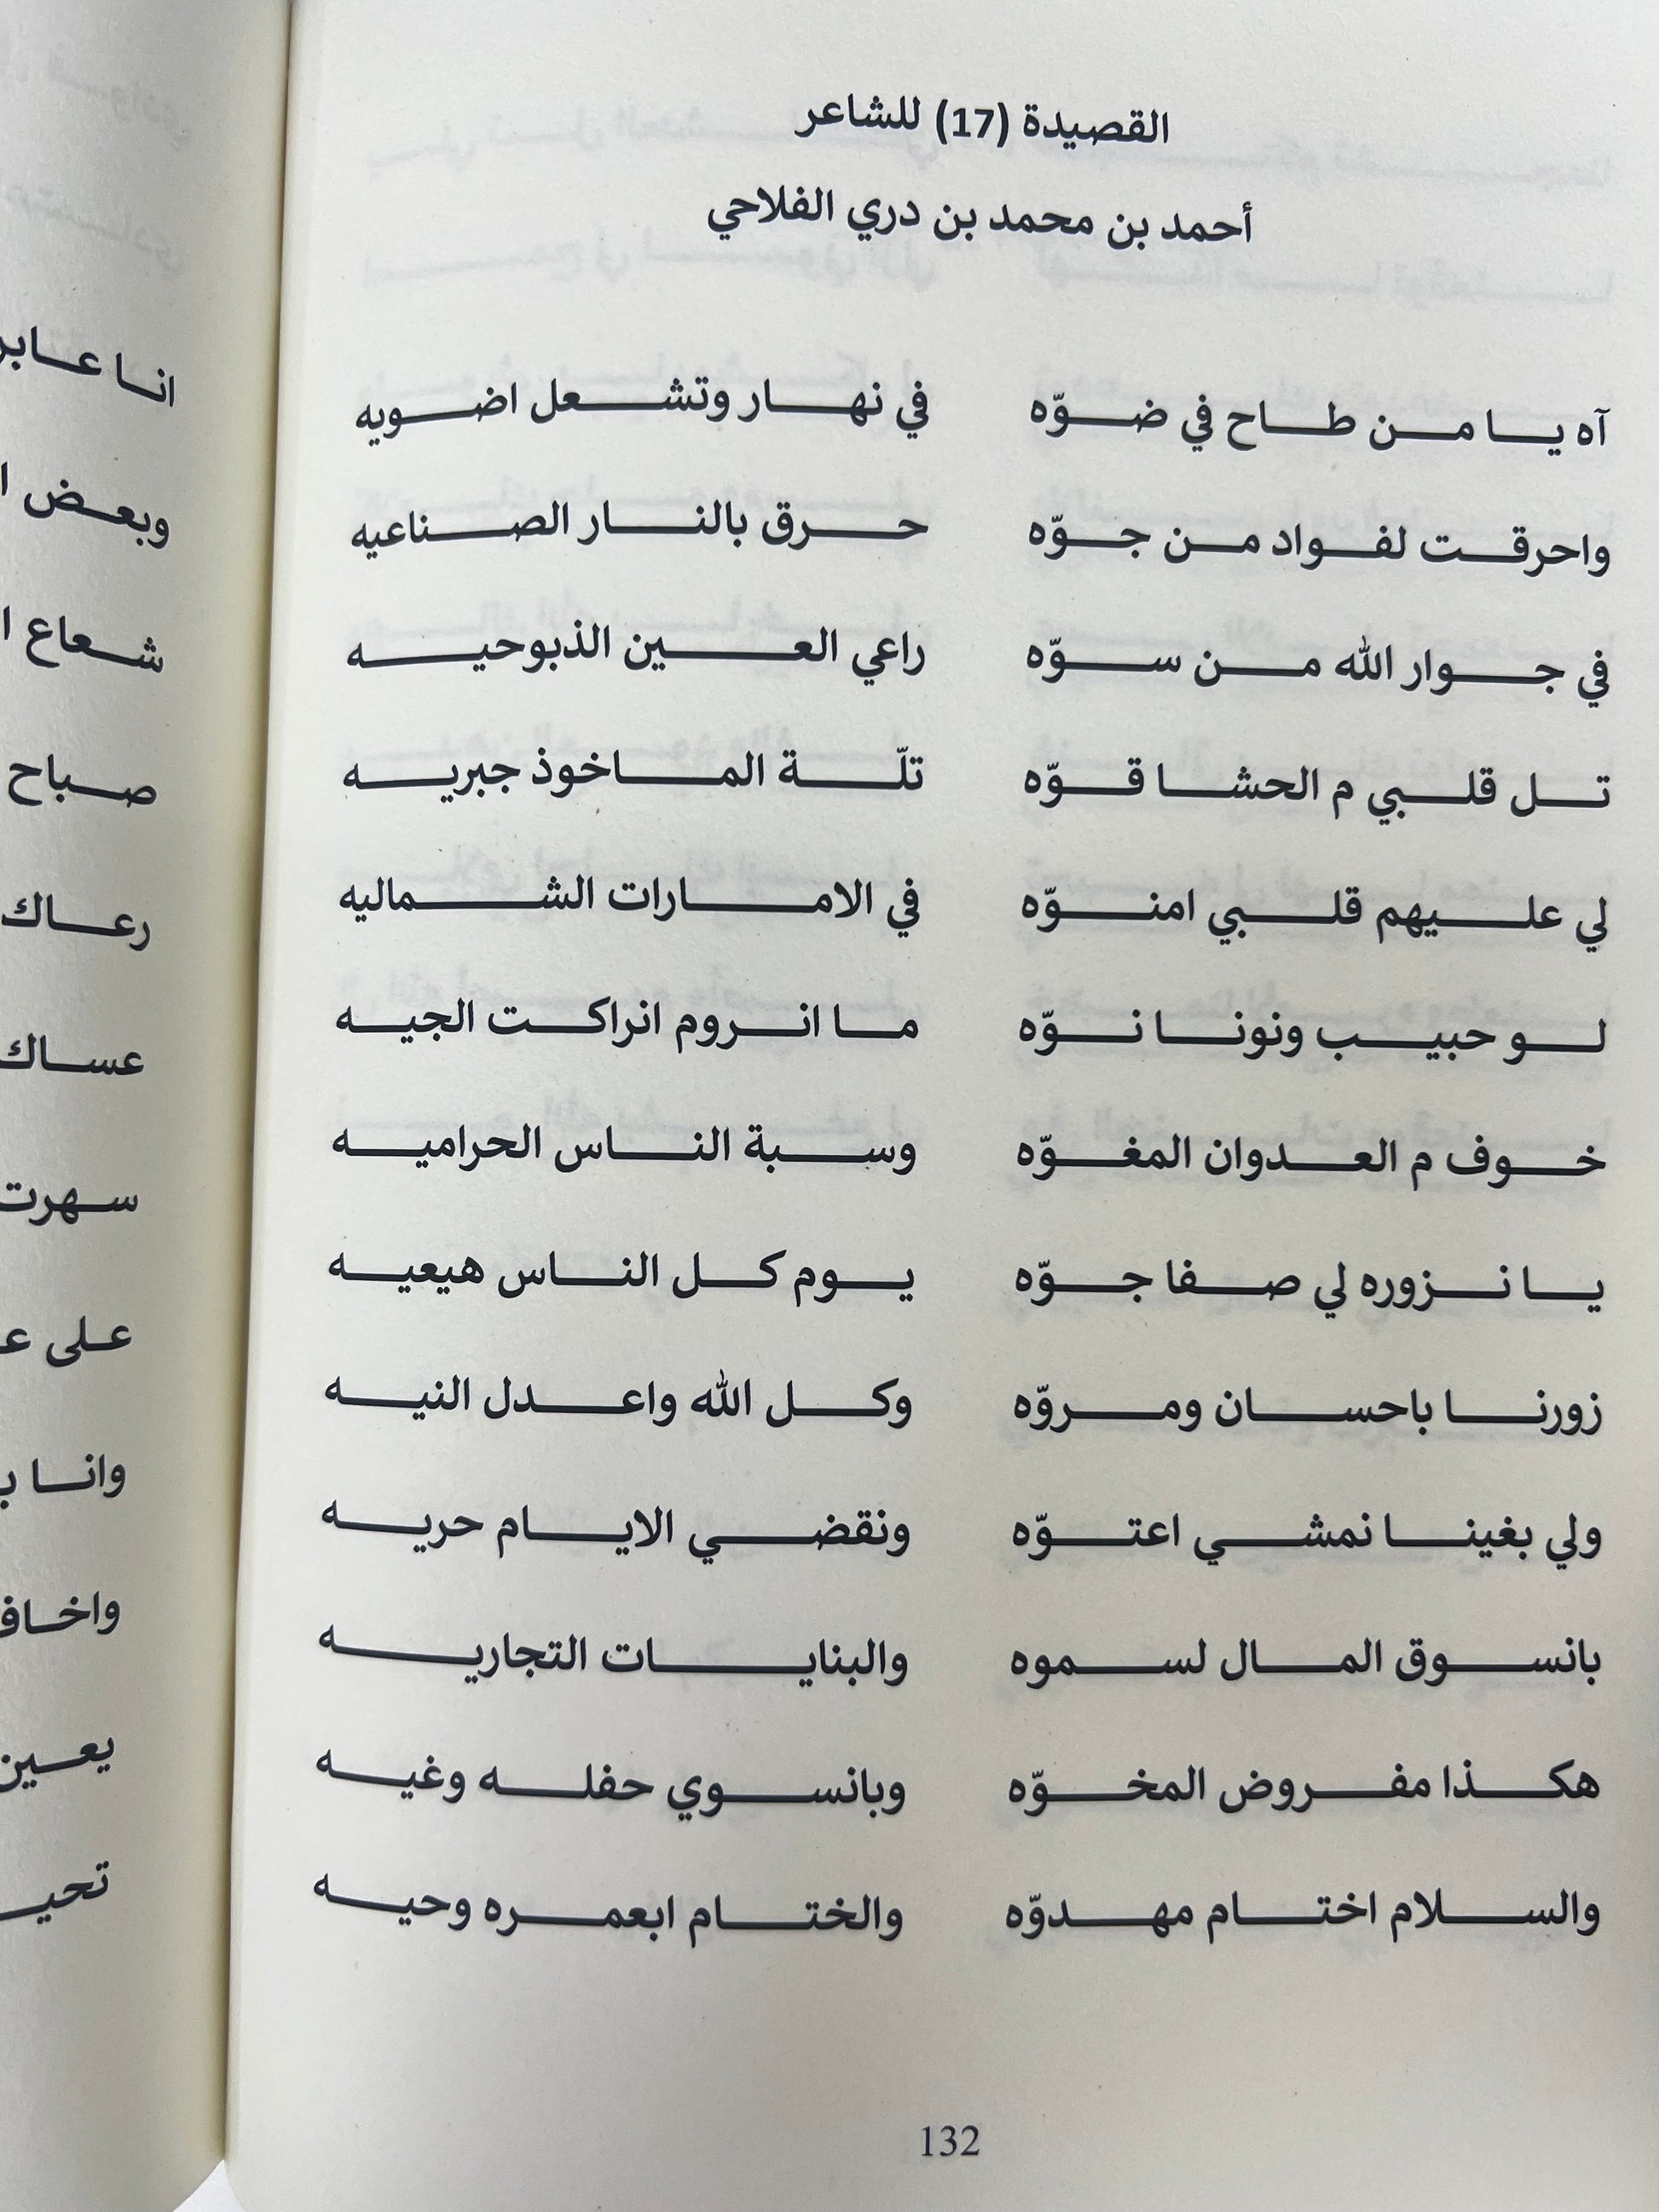 القصيدة (17) للشاعر
أحمد بن محمد بن دري الفلاحي
آه يا من طاح في ضوّه في نهار وتشعل اضويه
واحرقت لفواد من جوّه حرق بالنار الصناعيه
في جوار الله من سوّه راعي العين الذبوحيه
تل قلبي م الحشا قوّه تلّة الماخوذ جبريه
لي عليهم قلبي امنوّه في الامارات الشماليه
لو حبيب ونونا نوّه ما انروم انراكت الجيه
خوف م العدوان المغوّه وسبة الناس الحراميه
يا نزوره لي صفا جوّه يوم كل الناس هيعيه
زورنا باحسان ومروّه وكل الله واعدل النيه
ولي بغينا نمشي اعتوّه ونقضي الايام حريه
بانسوق المال لسموه والبنايات التجاريه
هكذا مفروض المخوّه وبانسوي حفله وغيه
والسلام اختام مهدوّه والختام ابعمره وحيه
132
انا عابر
وبعض
شعاع
صباح
رعاك
عساك
سهرت
على
وانا
واخاف
يعين